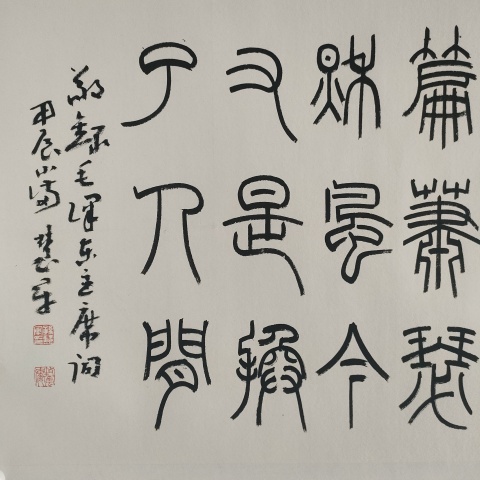 篇蕭瑟
秋風今
又是換
了人間
敬錄毛澤東主席詞
甲辰小滿 慧